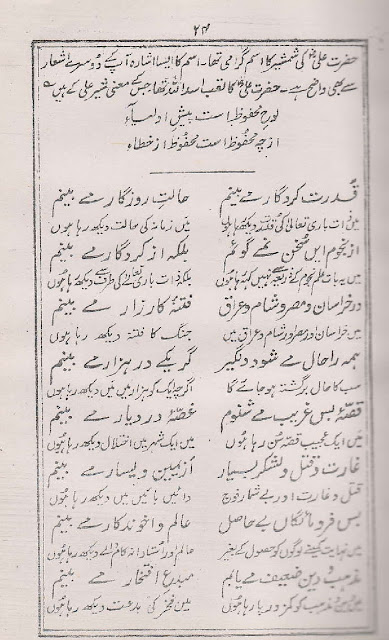 ۲۴
حضرت علیؓ کی شمشیر کا اسم گرامی تھا۔ اسم کا ایسا اشارہ آپ کے دوسرے اشعار
سے بھی واضح ہے۔ حضرت علیؓ کا لقب اسد اللہ تھا جس کے معنی شیر علی کے ہیں
لوح محفوظ است پیش اولیاء
از چہ محفوظ است محفوظ از خطاء
قدرت کردگار مے بینم حالت روزگار مے بینم
میں ذات باری تعالیٰ کی قدرت دیکھ رہا ہوں میں زمانہ کی حالت دیکھ رہا ہوں
از نجوم ایں سخن نمے گوئم بلکہ از کردگار مے بینم
میں یہ بات علم نجوم کے ذریعہ نہیں کہہ رہا ہوں بلکہ ذات باری تعالیٰ کی طرف سے دیکھ رہا ہوں
در خراسان و مصر و شام و عراق فتنۂ کارزار مے بینم
میں خراسان و مصر و شام و عراق میں جنگ کا فتنہ دیکھ رہا ہوں
ہمہ را حال مے شود دیگر گر یکے در ہزار مے بینم
سب کا حال برگشتہ ہو جائے گا اگرچہ ایک کو ہزار میں میں دیکھ رہا ہوں
قصۂ بس غریب مے شنوم غصۂ در دیار مے بینم
میں ایک عجیب قصہ سن رہا ہوں میں ایک شہر میں اختلال دیکھ رہا ہوں
غارت و قتل و لشکر بسیار از یمین و یسار مے بینم
قتل و غارت اور بے شمار فوج دائیں بائیں میں دیکھ رہا ہوں
بس فرومائگاں بے حاصل عالم و اخوندکار مے بینم
میں نہایت کمینے لوگوں کو حصول کے بغیر عالم اور استاد دیکھ رہا ہوں
مذہب و دین ضعیف مے یابم مبدع افتخار مے بینم
میں مذہب کو کمزور پا رہا ہوں میں فخر کی بدعت دیکھ رہا ہوں